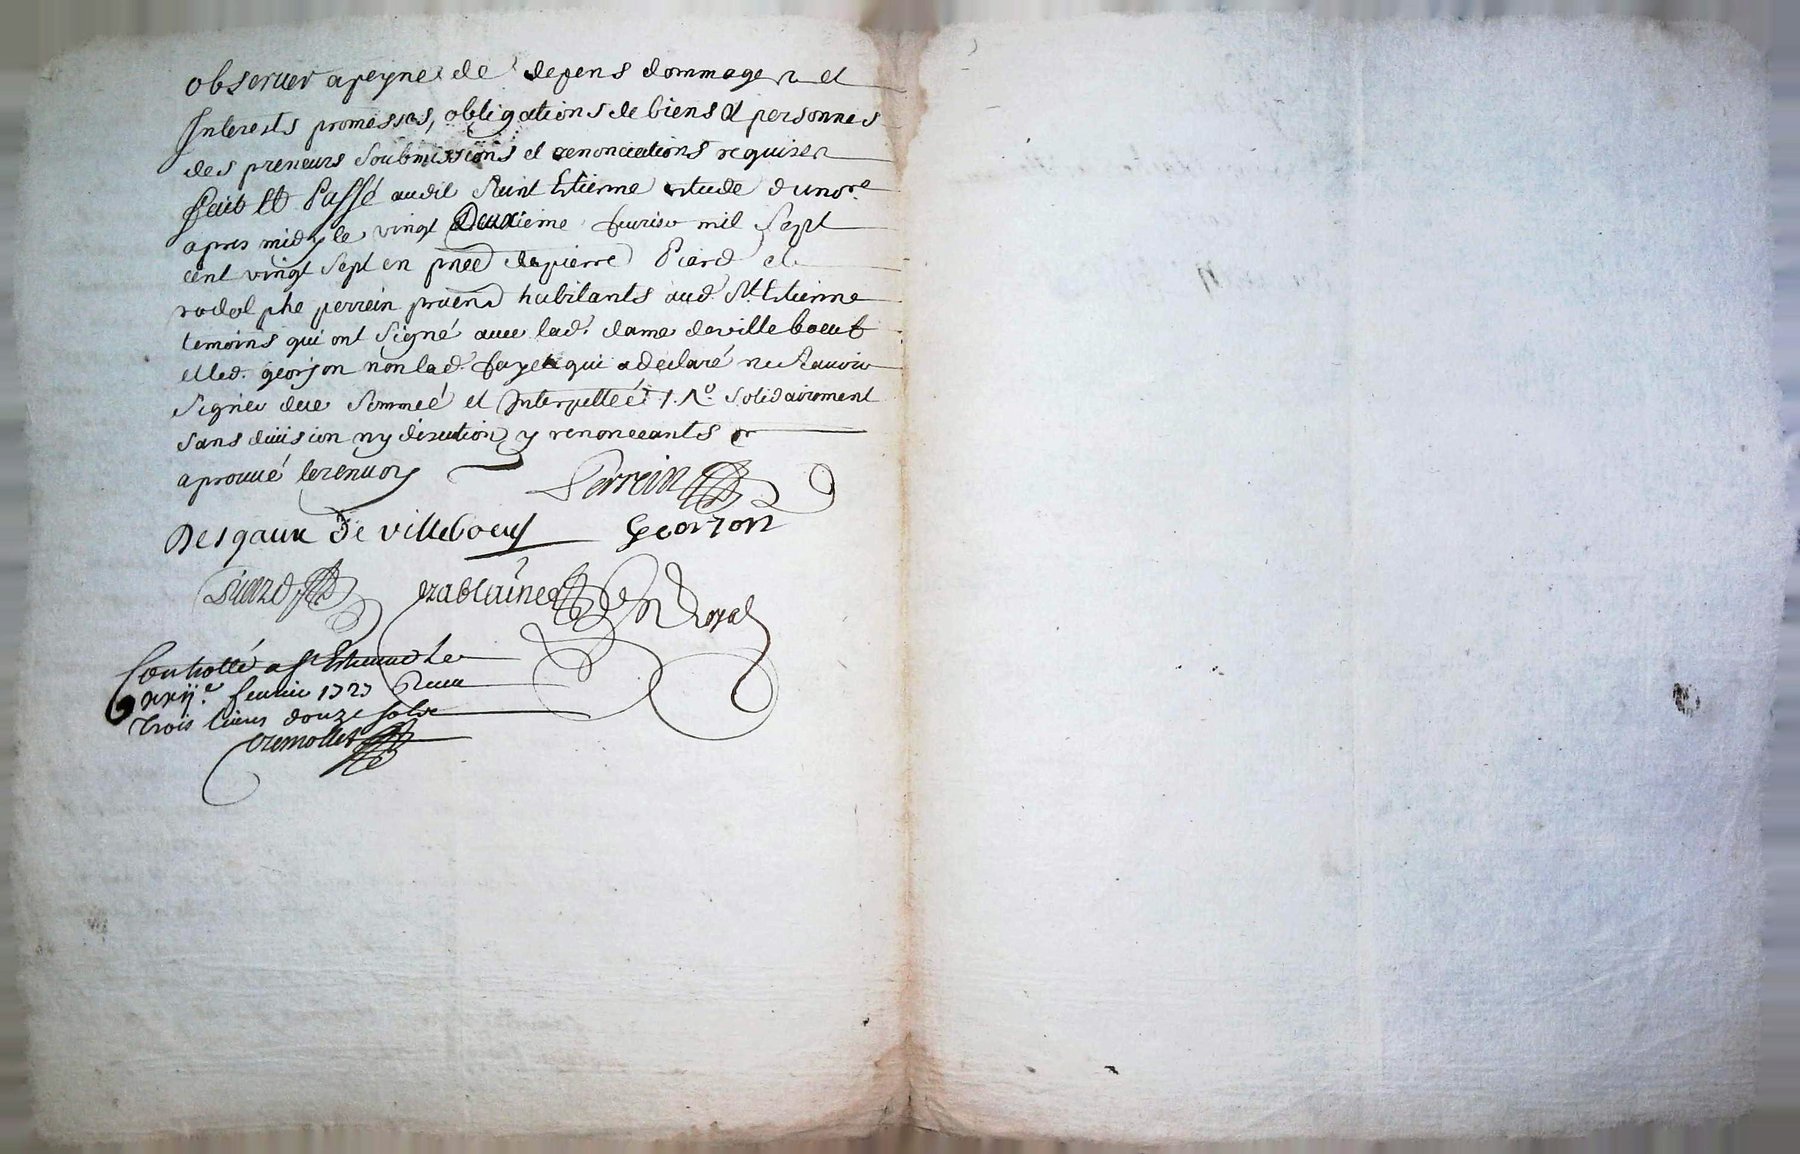 observer a peyne de depens dommages et
Interests promesses, obligations de biens & personnes
des preneurs soubmissions et renonciations requises
fait Et Passé audit Saint Estienne estude d'un no.re
apres midy le vingt Deuxieme feurier mil sept
cent vingt sept en pnce de pierre Piard et
rodolphe perrein pratiens habitants aud. St Estienne
temoins qui ont signé avec lad. dame de villeboeuf
et led. georjon non lad. fayet qui a declaré ne sçauoir
signer de ce sommeé et Interpelleé /. No. solidairement
sans diuision ny discution y renonceants
aprouué le renuoy
Perrein
Desgaux De villeboeuf Georjon
Piard
Royal
Controllé a St Estienne Le
xxij.e feurier 1727 Receu
trois liures douze sols